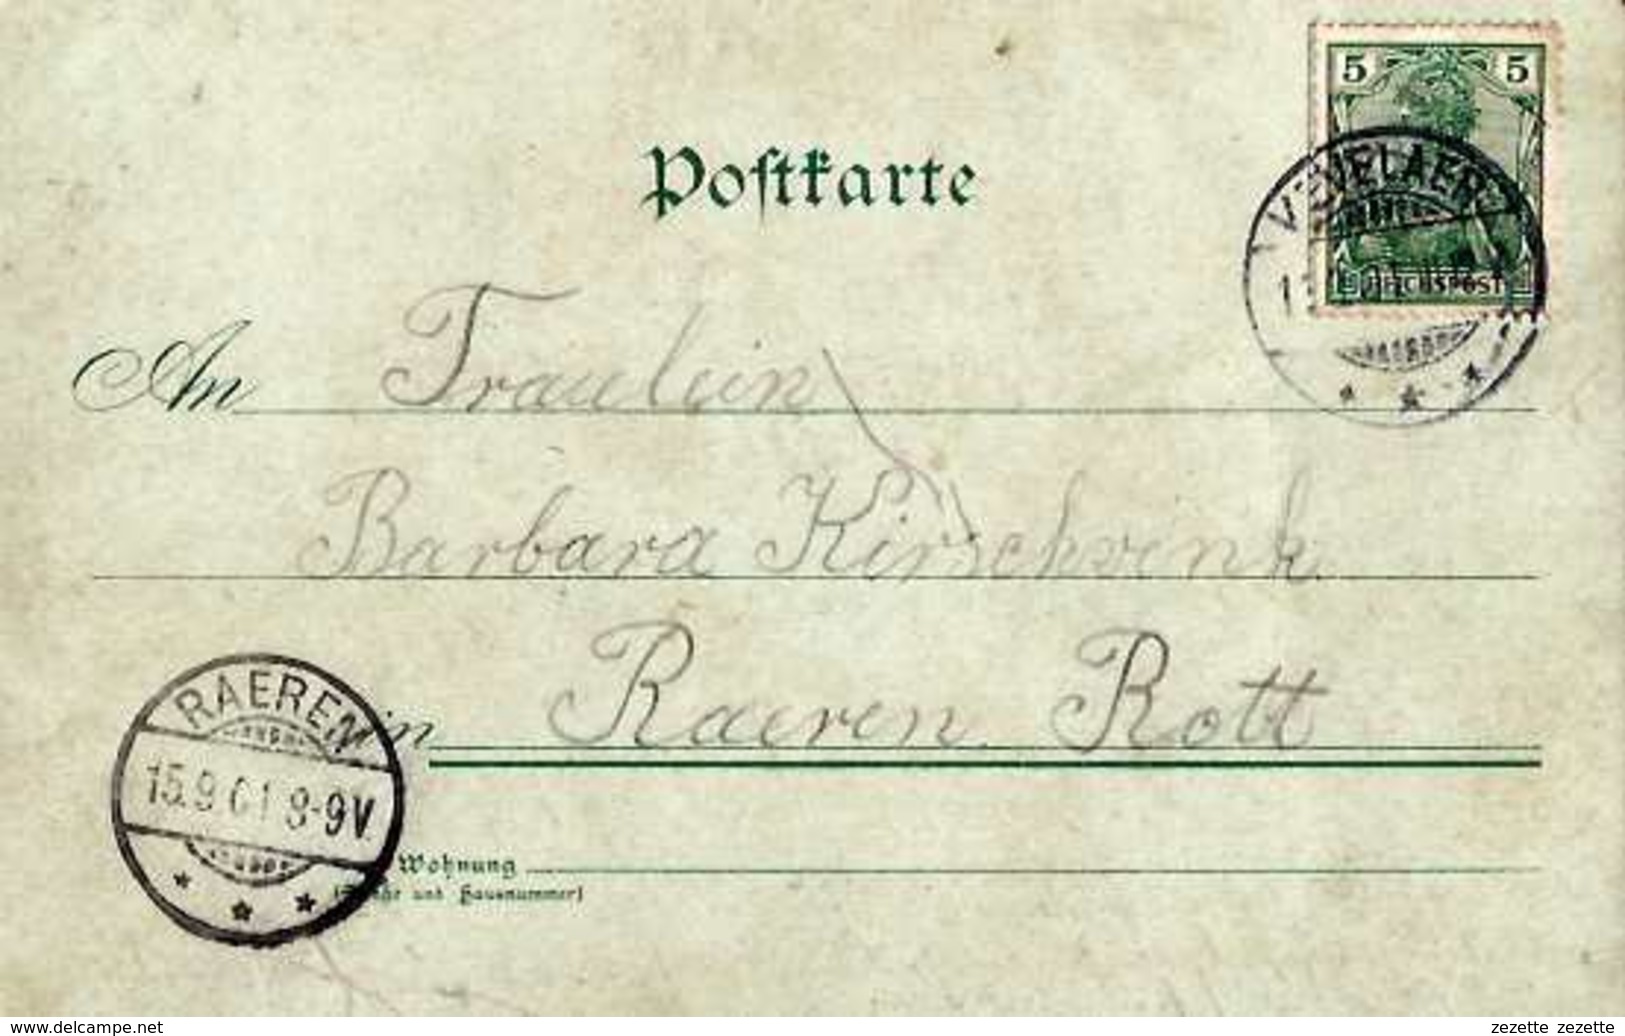 5 5
Postkarte
REICHSPOST
An Fraulein
Barbara Kirschvink
RAEREN
in Raeren Rott
15.9 01 8-9V.
Wohnung
und Hausnummer)
www.delcampe.net
zezette_zezette